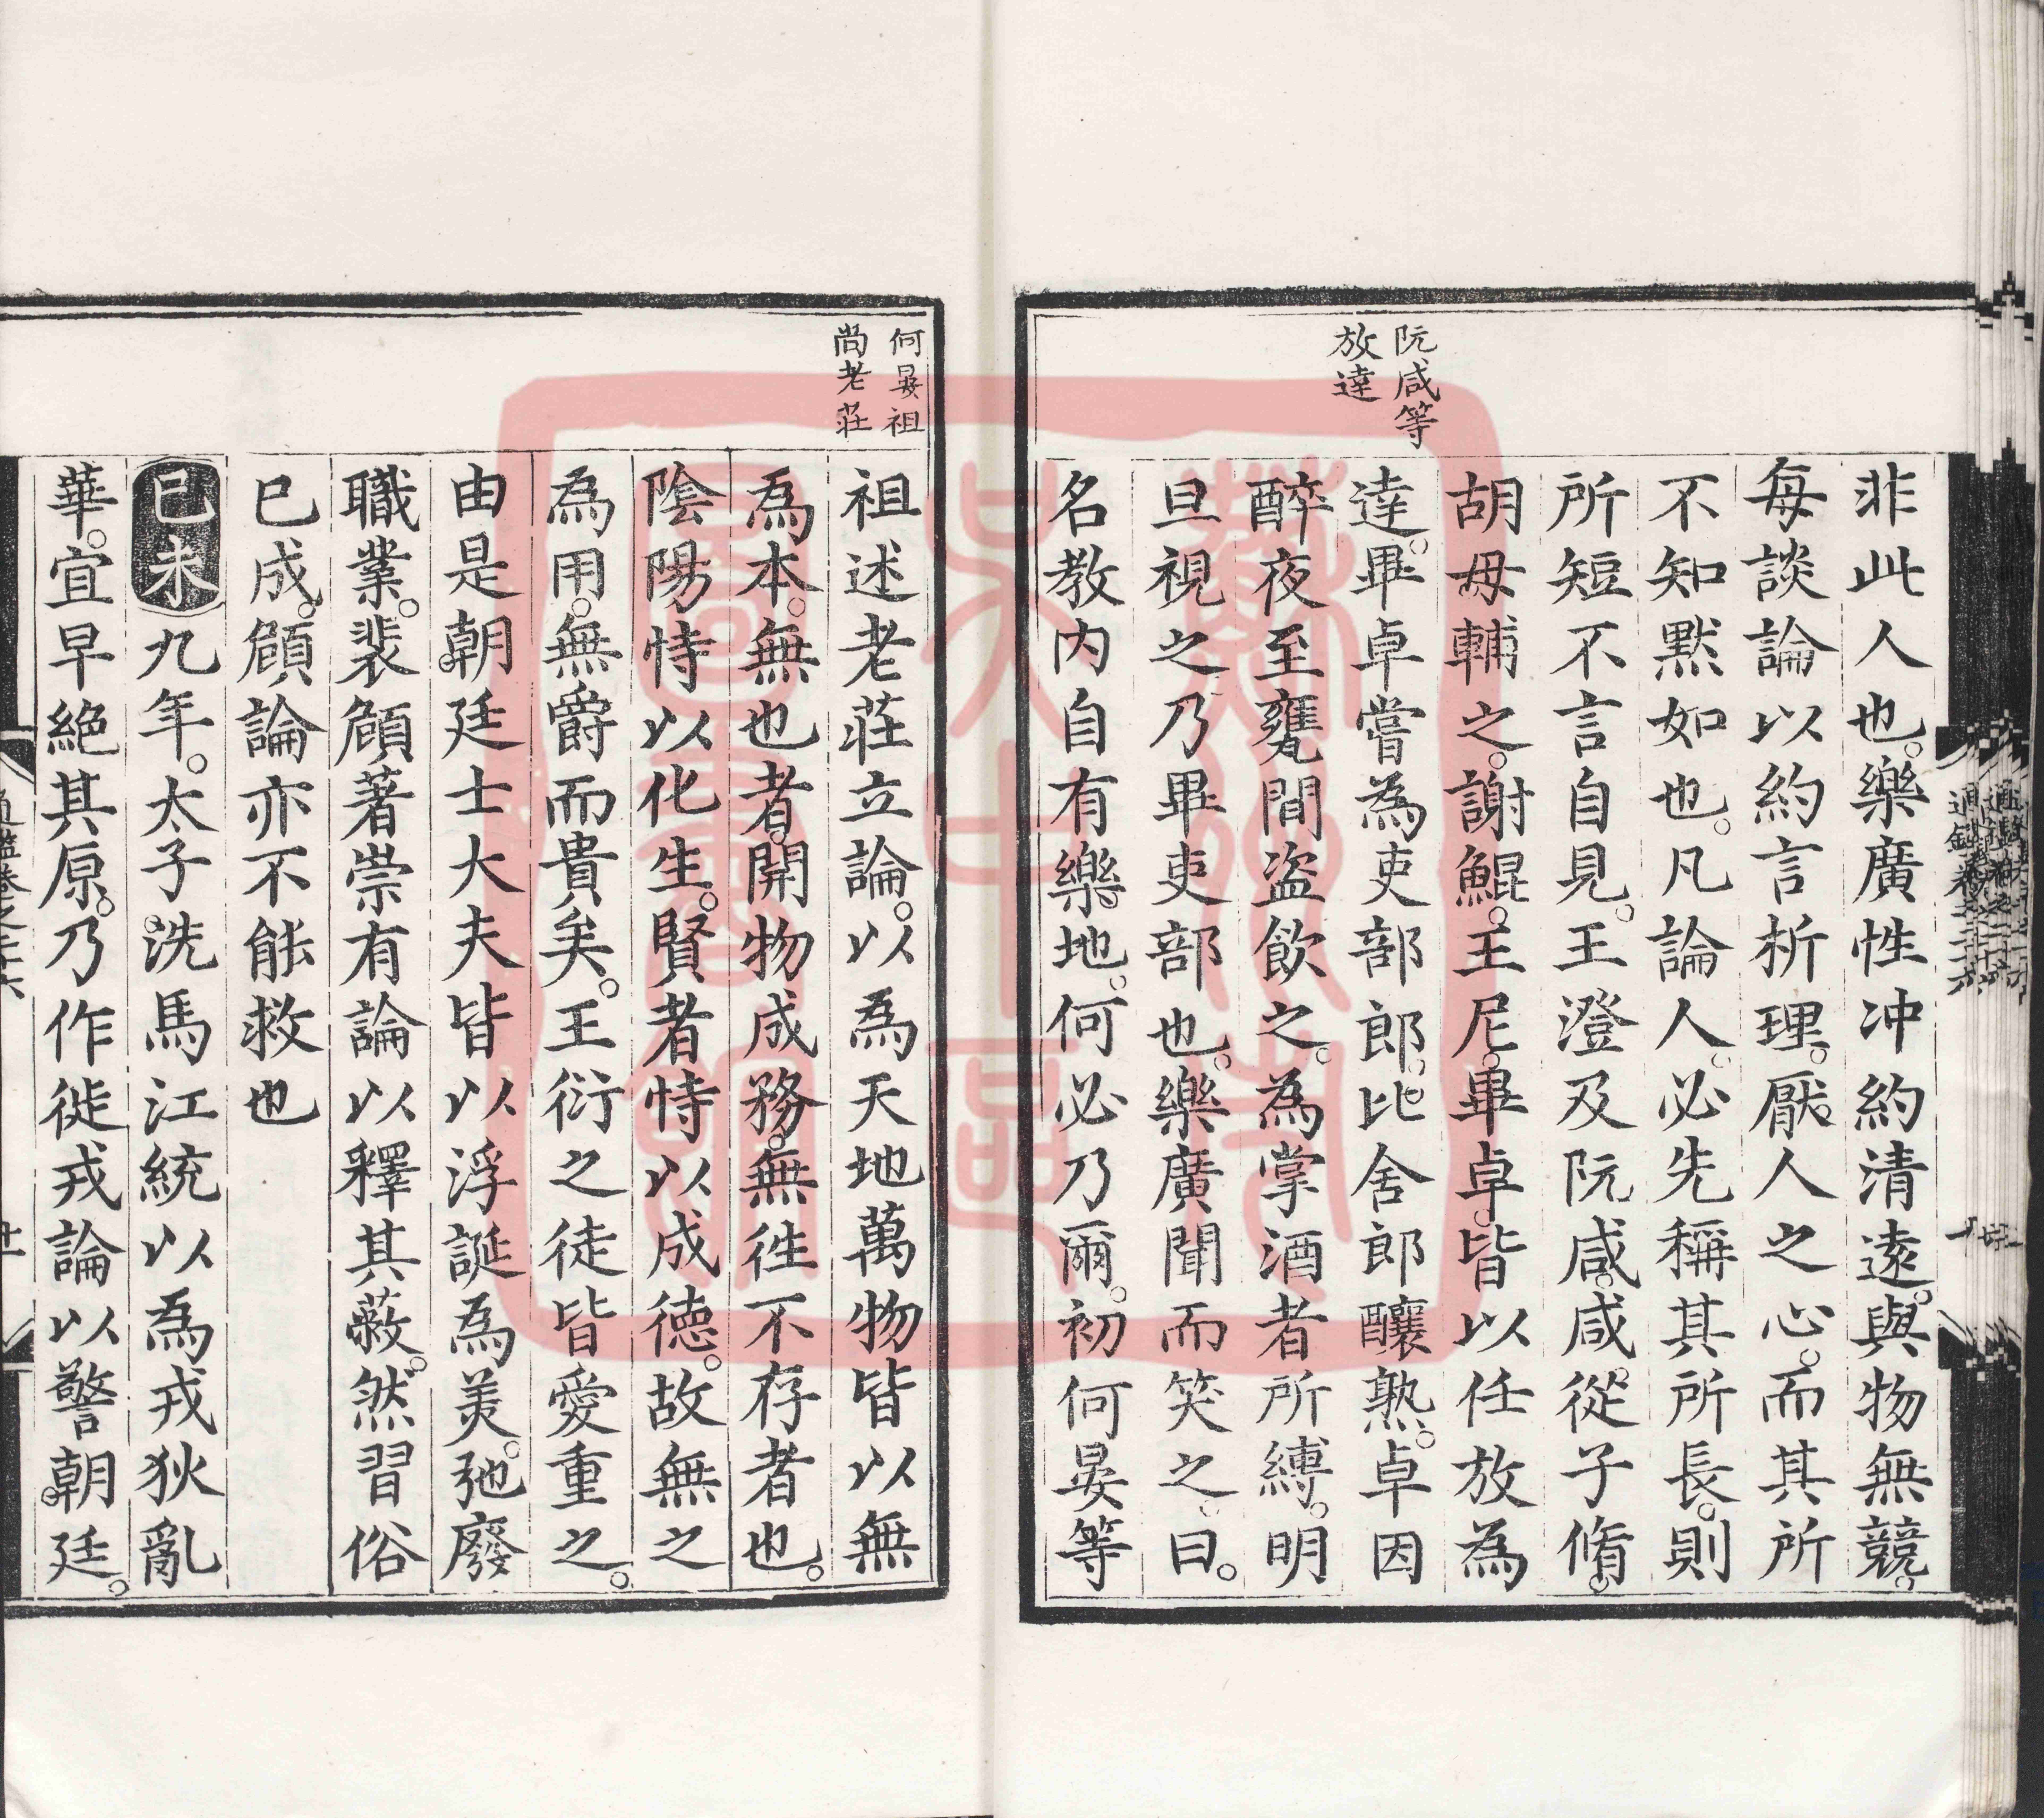 阮咸等
放達
非此人也。樂廣性冲約清遠。與物無競。
每談論以約言析理。厭人之心。而其所
不知默如也。凡論人。必先稱其所長。則
所短不言自見。王澄及阮咸。咸從子脩。
胡毋輔之。謝鯤。王尼。畢卓。皆以任放為
達。畢卓嘗為吏部郎。比舍郎釀熟。卓因
醉夜至甕間盗飲之。為掌酒者所縛。明
旦視之乃畢吏部也。樂廣聞而笑之。曰。
名教内自有樂地。何必乃爾。初何晏等
何晏祖
尚老莊
祖述老莊立論。以為天地萬物皆以無
為本。無也者。開物成務。無徃不存者也。
陰陽恃以化生。賢者恃以成德。故無之
為用。無爵而貴矣。王衍之徒皆愛重之。
由是朝廷士大夫皆以浮誕為美。弛廢
職業。裴頠著崇有論以釋其蔽。然習俗
已成。頠論亦不能救也
己未九年。太子洗馬江統以為戎狄亂
華。宜早絕其原。乃作徙戎論以警朝廷。
通鑑卷之二十六
廿一